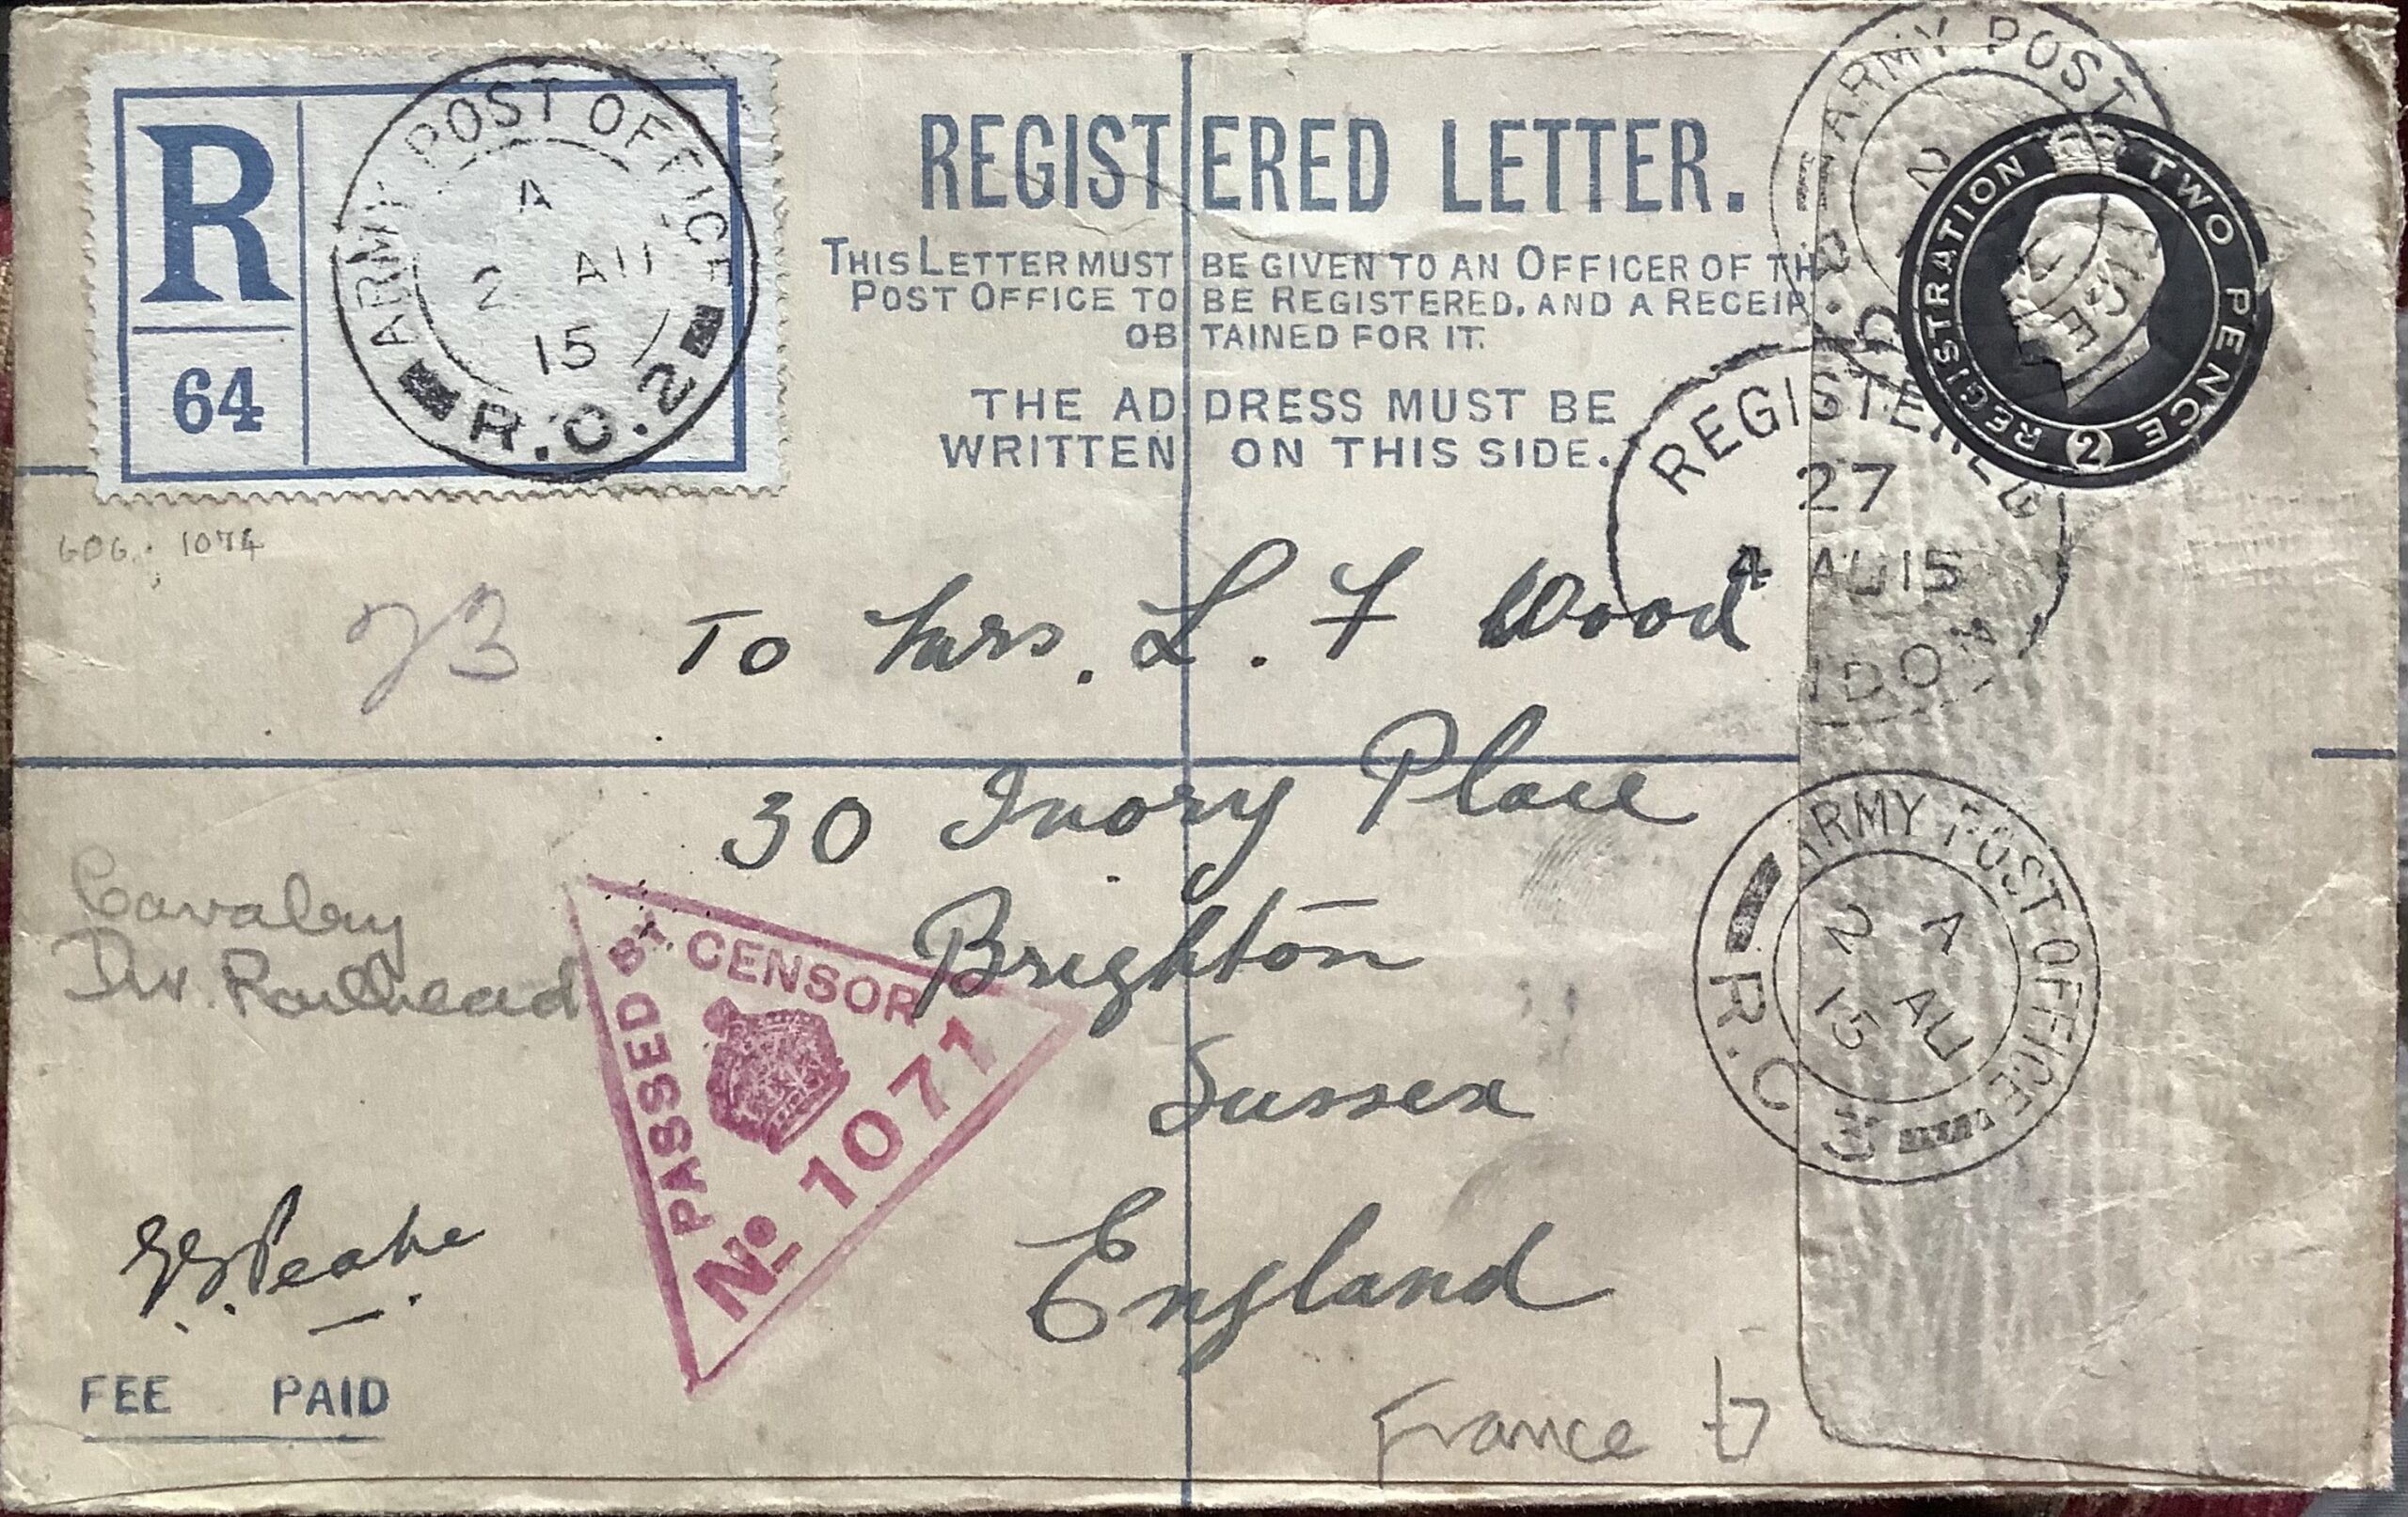 R
64
ARMY POST OFFICE
A
2 AU
15
R.O.2
REGISTERED LETTER.
THIS LETTER MUST BE GIVEN TO AN OFFICER OF TH
POST OFFICE TO BE REGISTERED, AND A RECEIP
OBTAINED FOR IT.
THE ADDRESS MUST BE
WRITTEN ON THIS SIDE.
ARMY POST
2
REGISTRATION TWO PENCE
2
REGISTERED
27
4 AU 15
NDO
1074
73
To Mrs. L. F Wood
30 Ivory Place
Brighton
Sussex
England
Cavalry
Div. Railhead
PASSED BY CENSOR
No 1071
ARMY POST OFFICE
A
2 AU
15
R.O
Peake
FEE PAID
France